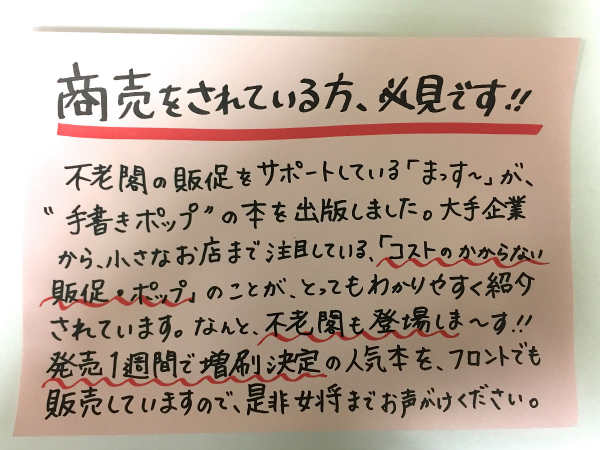 商売をされている方、必見です!!
不老閣の販促をサポートしている「まっす〜」が、
“手書きポップ”の本を出版しました。大手企業
から、小さなお店まで注目している、「コストのかからない
販促・ポップ」のことが、とってもわかりやすく紹介
されています。なんと、不老閣も登場しま〜す!!
発売1週間で増刷決定の人気本を、フロントでも
販売していますので、是非女将までお声がけください。